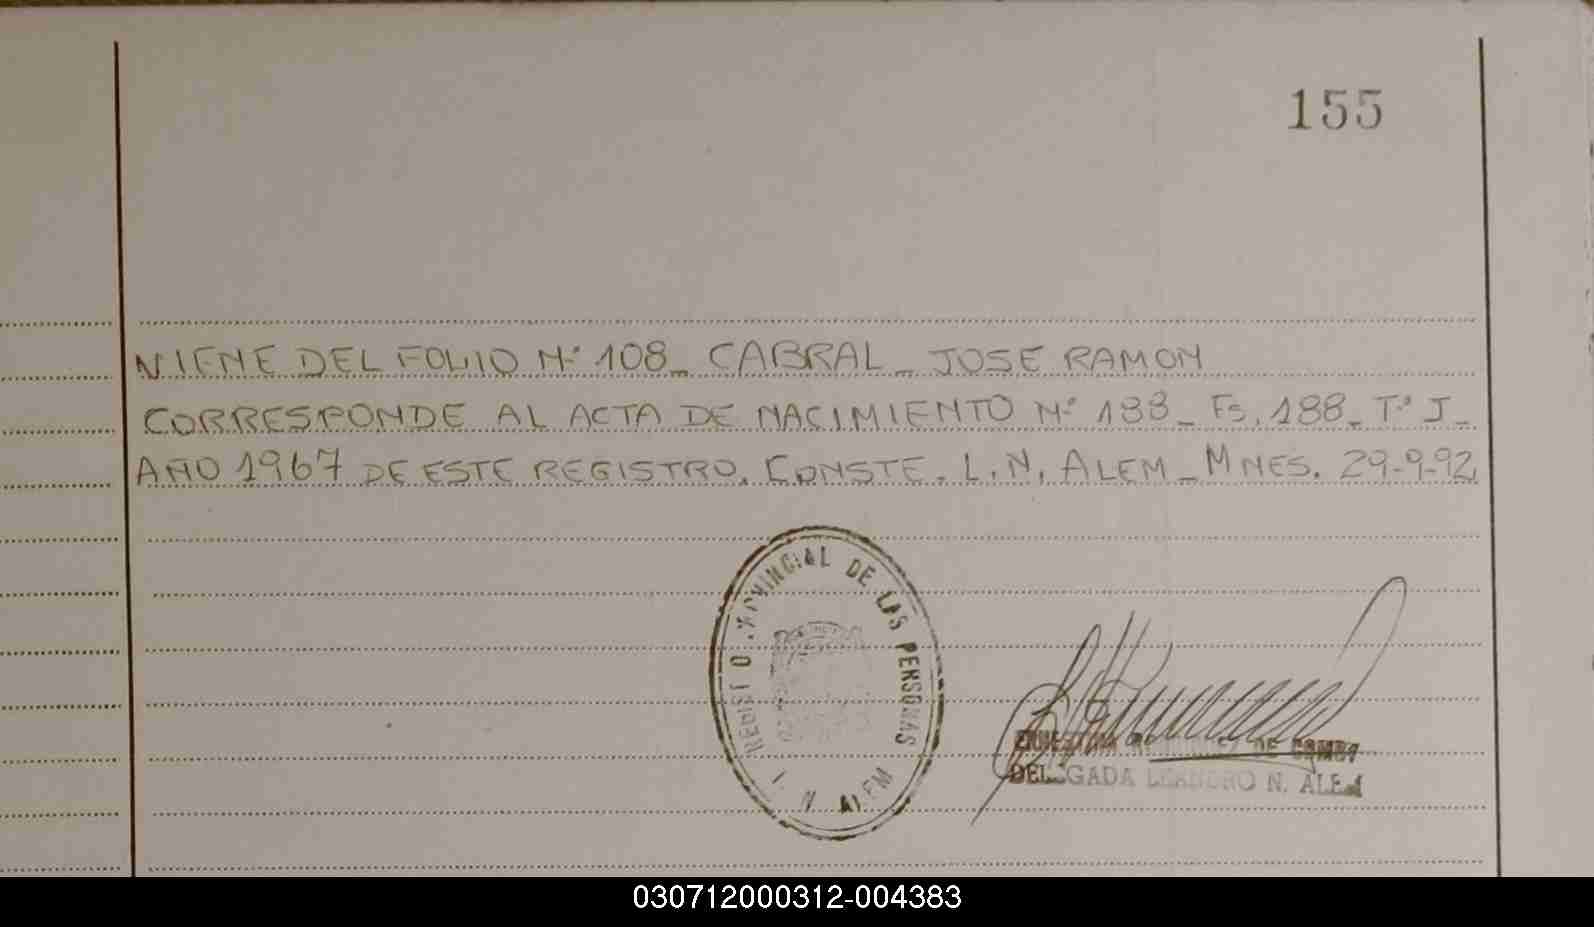 155
VIENE DEL FOLIO Nº 108_ CABRAL_ JOSE RAMON
CORRESPONDE AL ACTA DE NACIMIENTO Nº 188_ Fs. 188_ Tº I_
AÑO 1967 DE ESTE REGISTRO. CONSTE. L.N. ALEM_ MNES. 29-9-92
REGISTRO PROVINCIAL DE LAS PERSONAS
L. N. ALEM
DE
DELEGADA LEANDRO N. ALEM
030712000312-004383